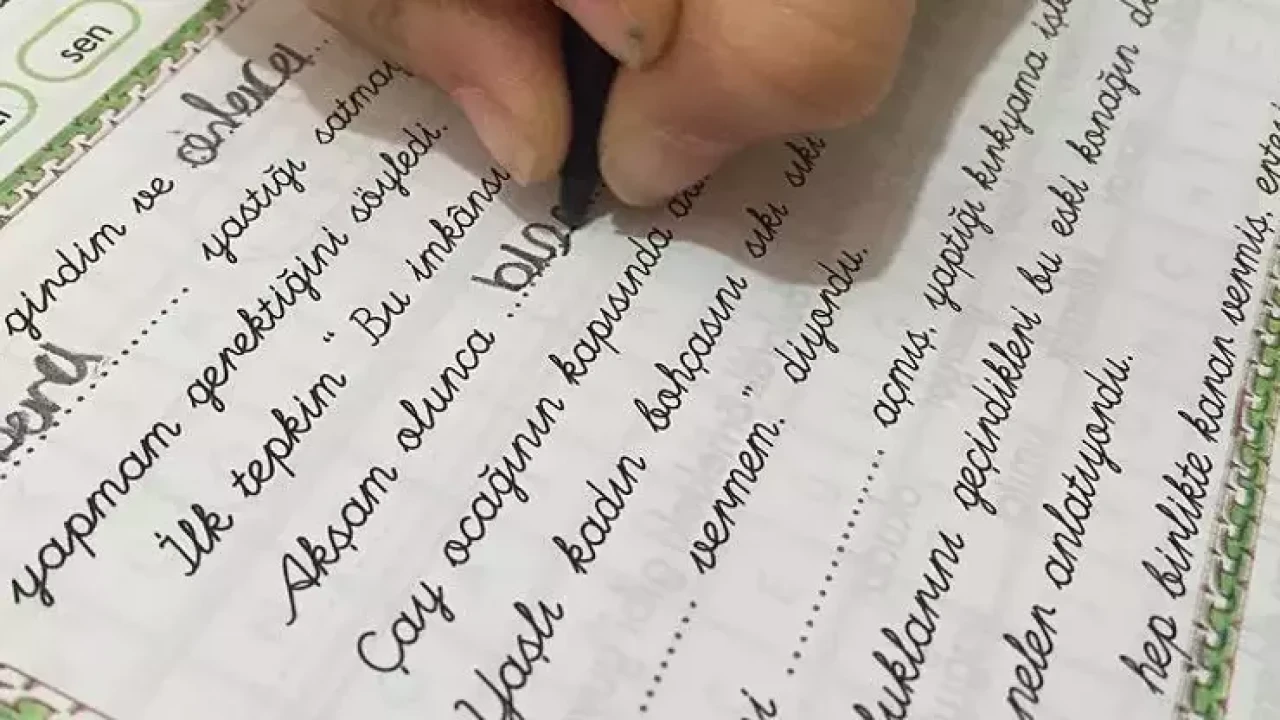 sen
gindim ve
yastığı satmay
yapmam gerektiğini söyledi.
İlk tepkim " Bu imkânsı
Akşam olunca
Çay ocağının kapısında
Yaşlı kadın bohçasını sıkı sıkı
vermem. " diyordu.
açmış, yaptığı kırkyama
uklarını geçindikleri bu eski konağın
neler anlatıyordu.
hep birlikte karar vermiş,